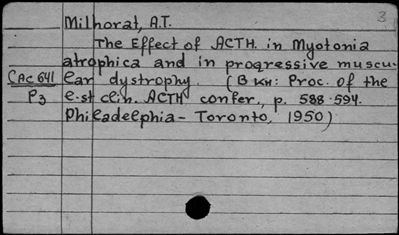 3
Milhorat, A.T.
The Effect of ACTH. in Myotonia
atrophica and in progressive muscu-
CAC 641 lar dystrophy. (В кн: Proc. of the
P3 1-st clin. ACTH confer., p. 588-594.
Philadelphia - Toronto, 1950)